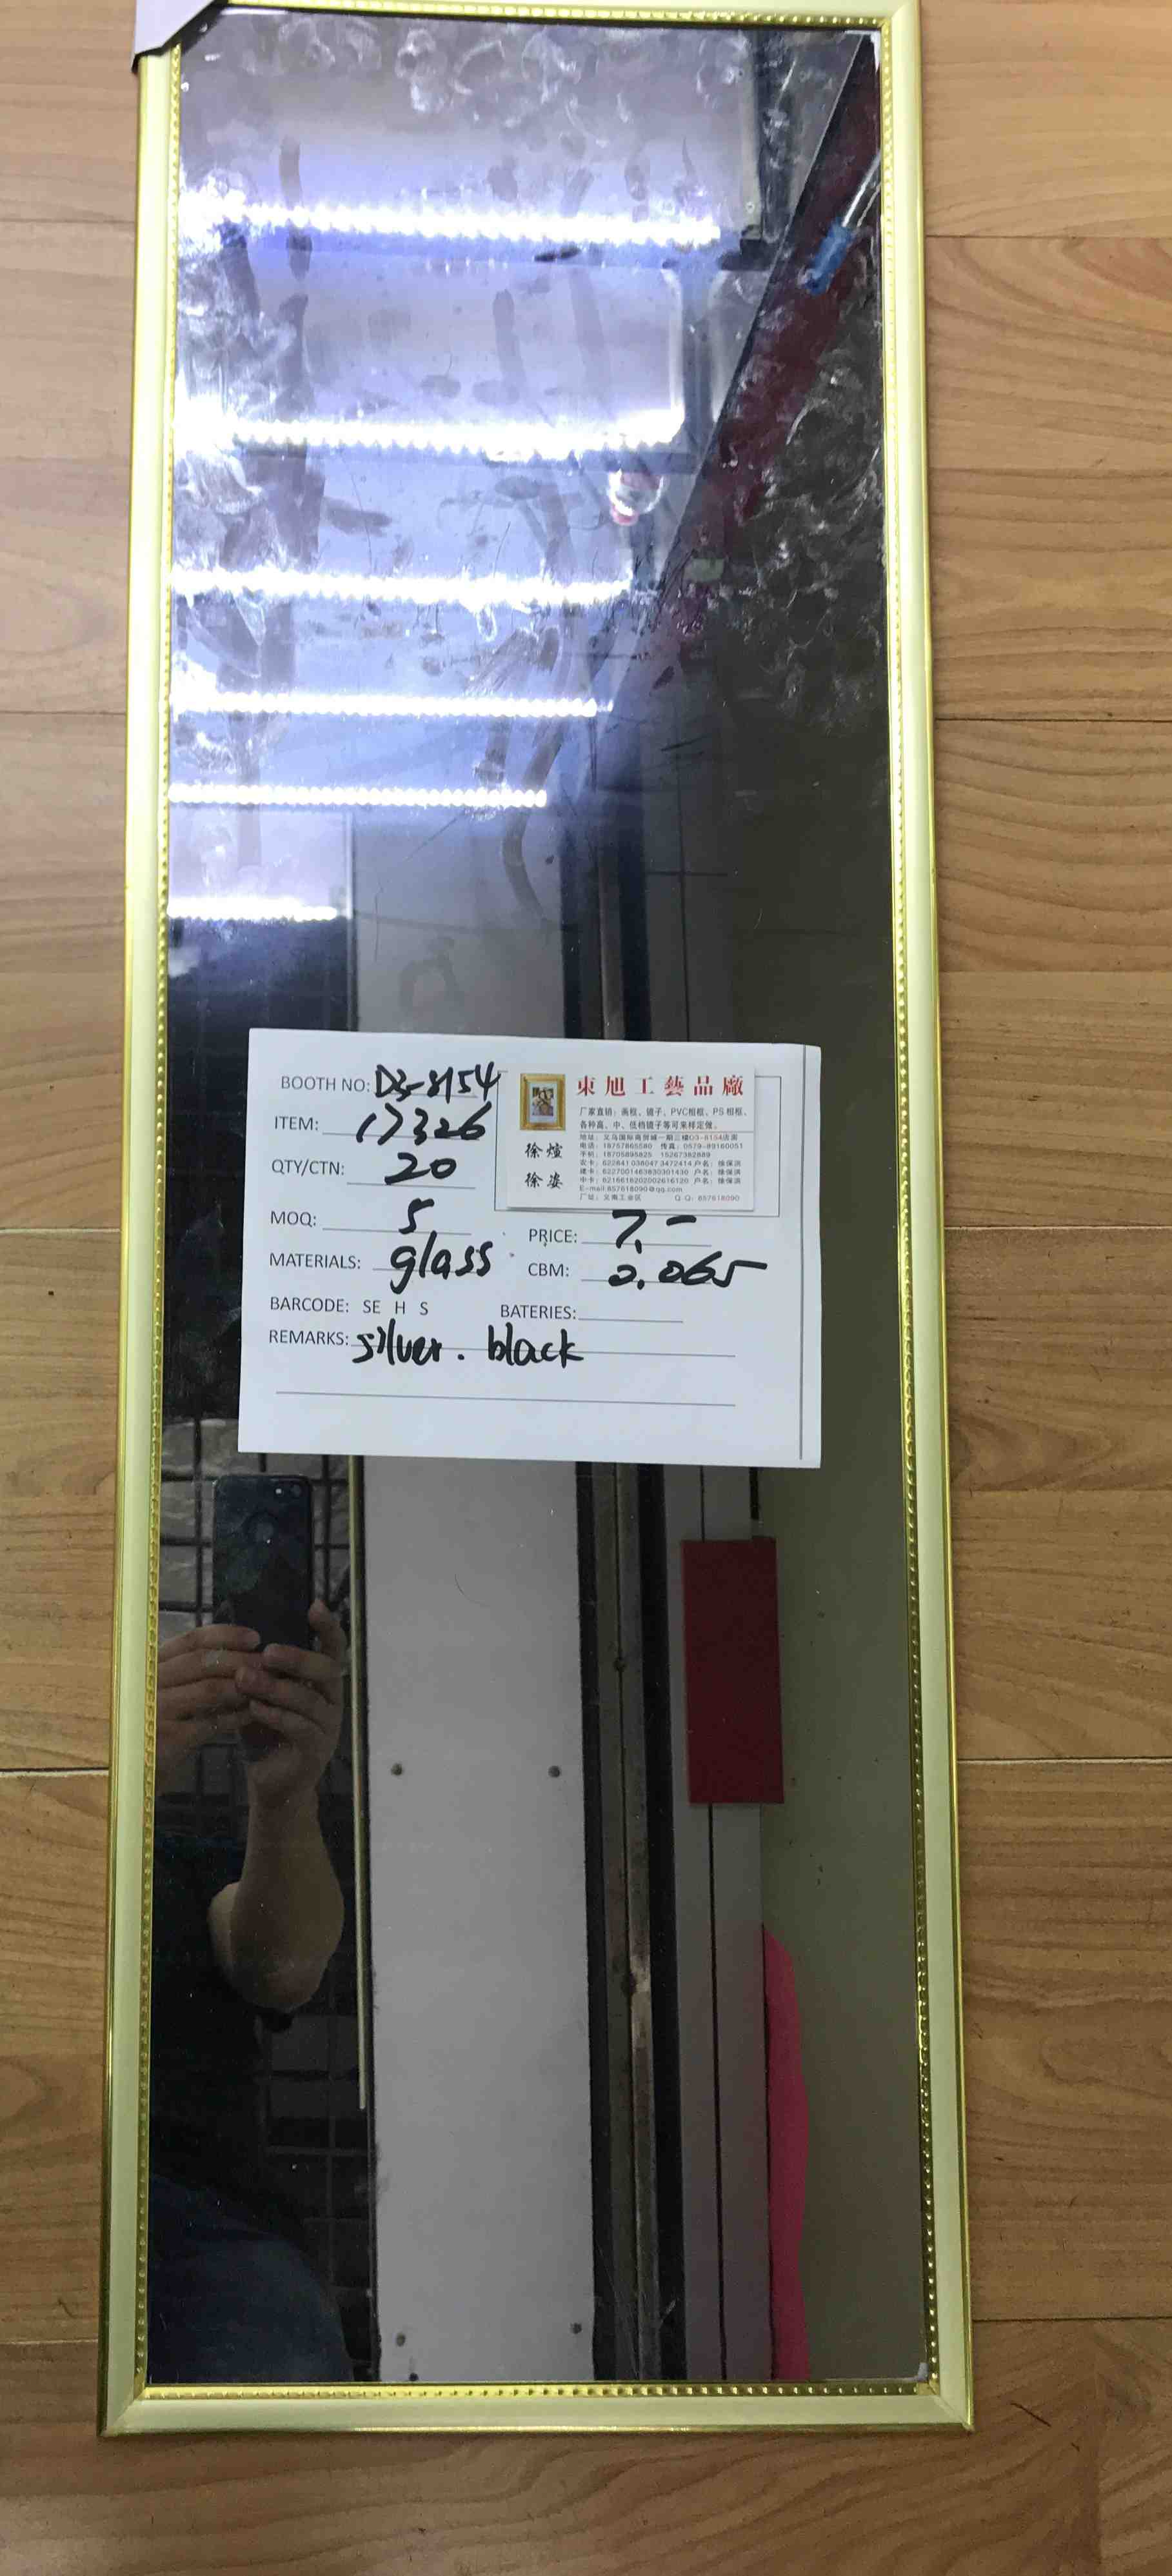 BOOTH NO: D3-8154
ITEM: 17326
QTY/CTN: 20
MOQ: 5
PRICE: 7.-
MATERIALS: glass
CBM: 0.065
BARCODE: SE H S
BATERIES:
REMARKS: silver. black
東旭工藝品廠
厂家直销：画框、镜子、PVC相框、PS相框、
各种高、中、低档镜子等可来样定做。
徐煊
徐姿
地址：义乌国际商贸城一期三楼D3-8154店面
电话：18757865580 传真：0579-89160051
手机：18705895825 15267382889
农卡：622841 038047 3472414 户名：徐保洪
建卡：6227001463830301430 户名：徐保洪
中卡：6216616202002616120 户名：徐保洪
E-mail:857618090@qq.com
厂址：义南工业区 Q Q: 857618090